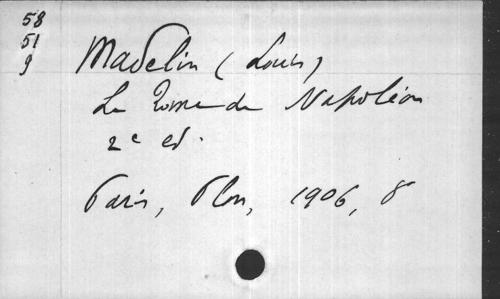 58
51
9
Madelin (Louis)
La Rome de Napoléon
2e ed.
Paris, Plon, 1906, 8°